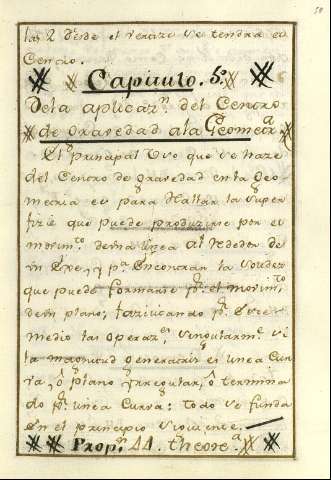 50
las 2 ds desde el vertize se tendrá el
Centro.
Capitulo. 5º
De la aplicazn. del Centro
de Gravedad ala Geometra
El prinzipal Uso que se haze
del Centro de Gravedad en la Geo
metria es para Hallar la super
fizie que puede produzirse por el
movimto. de una linea al Rededor de
un Exe, y pa. Encontrar la Solidez
que puede formarse pr. el movimto
de un plano; fazilitando pr. este
medio las Operazs. singularmte. si
la magnitud generatriz es linea Cur
va, ô plano irregular, ô termina
do pr. linea Curva: todo se funda
en el prinzipio siguiente.
Propn. 11. theorea.